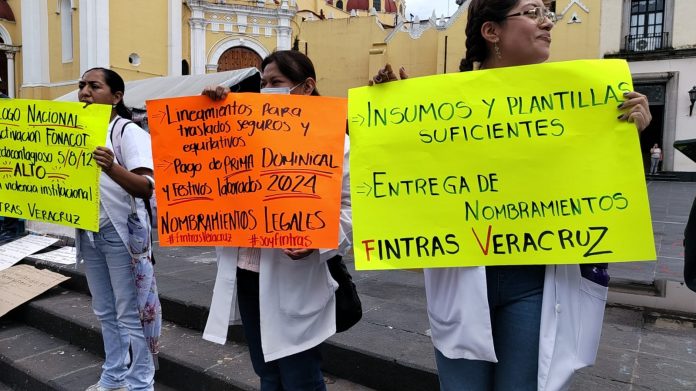 LOGO NACIONAL
ACTIVACIÓN FONACOT
5/8/12
ALTO
violencia institucional
FINTRAS VERACRUZ
→ LINEAMIENTOS PARA
TRASLADOS SEGUROS Y
EQUITATIVOS
→ PAGO DE PRIMA DOMINICAL
Y FESTIVOS LABORADOS 2024
NOMBRAMIENTOS LEGALES
#FINTRASVERACRUZ #SOYFINTRAS
→ INSUMOS Y PLANTILLAS
SUFICIENTES
→ ENTREGA DE
NOMBRAMIENTOS
FINTRAS VERACRUZ